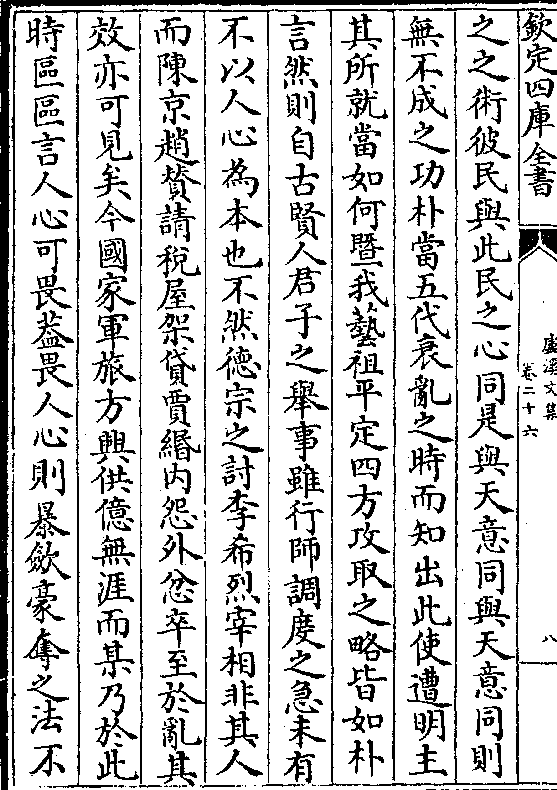 欽定四庫全書
盧溪文集
卷二十六
八
之之術彼民與此民之心同是與天意同與天意同則
無不成之功朴當五代衰亂之時而知出此使遭明主
其所就當如何暨我藝祖平定四方攻取之略皆如朴
言然則自古賢人君子之舉事雖行師調度之急未有
不以人心為本也不然德宗之討李希烈宰相非其人
而陳京趙賛請稅屋架貸賈緡内怨外忿卒至於亂其
效亦可見矣今國家軍旅方興供億無涯而某乃於此
時區區言人心可畏葢畏人心則暴斂豪奪之法不